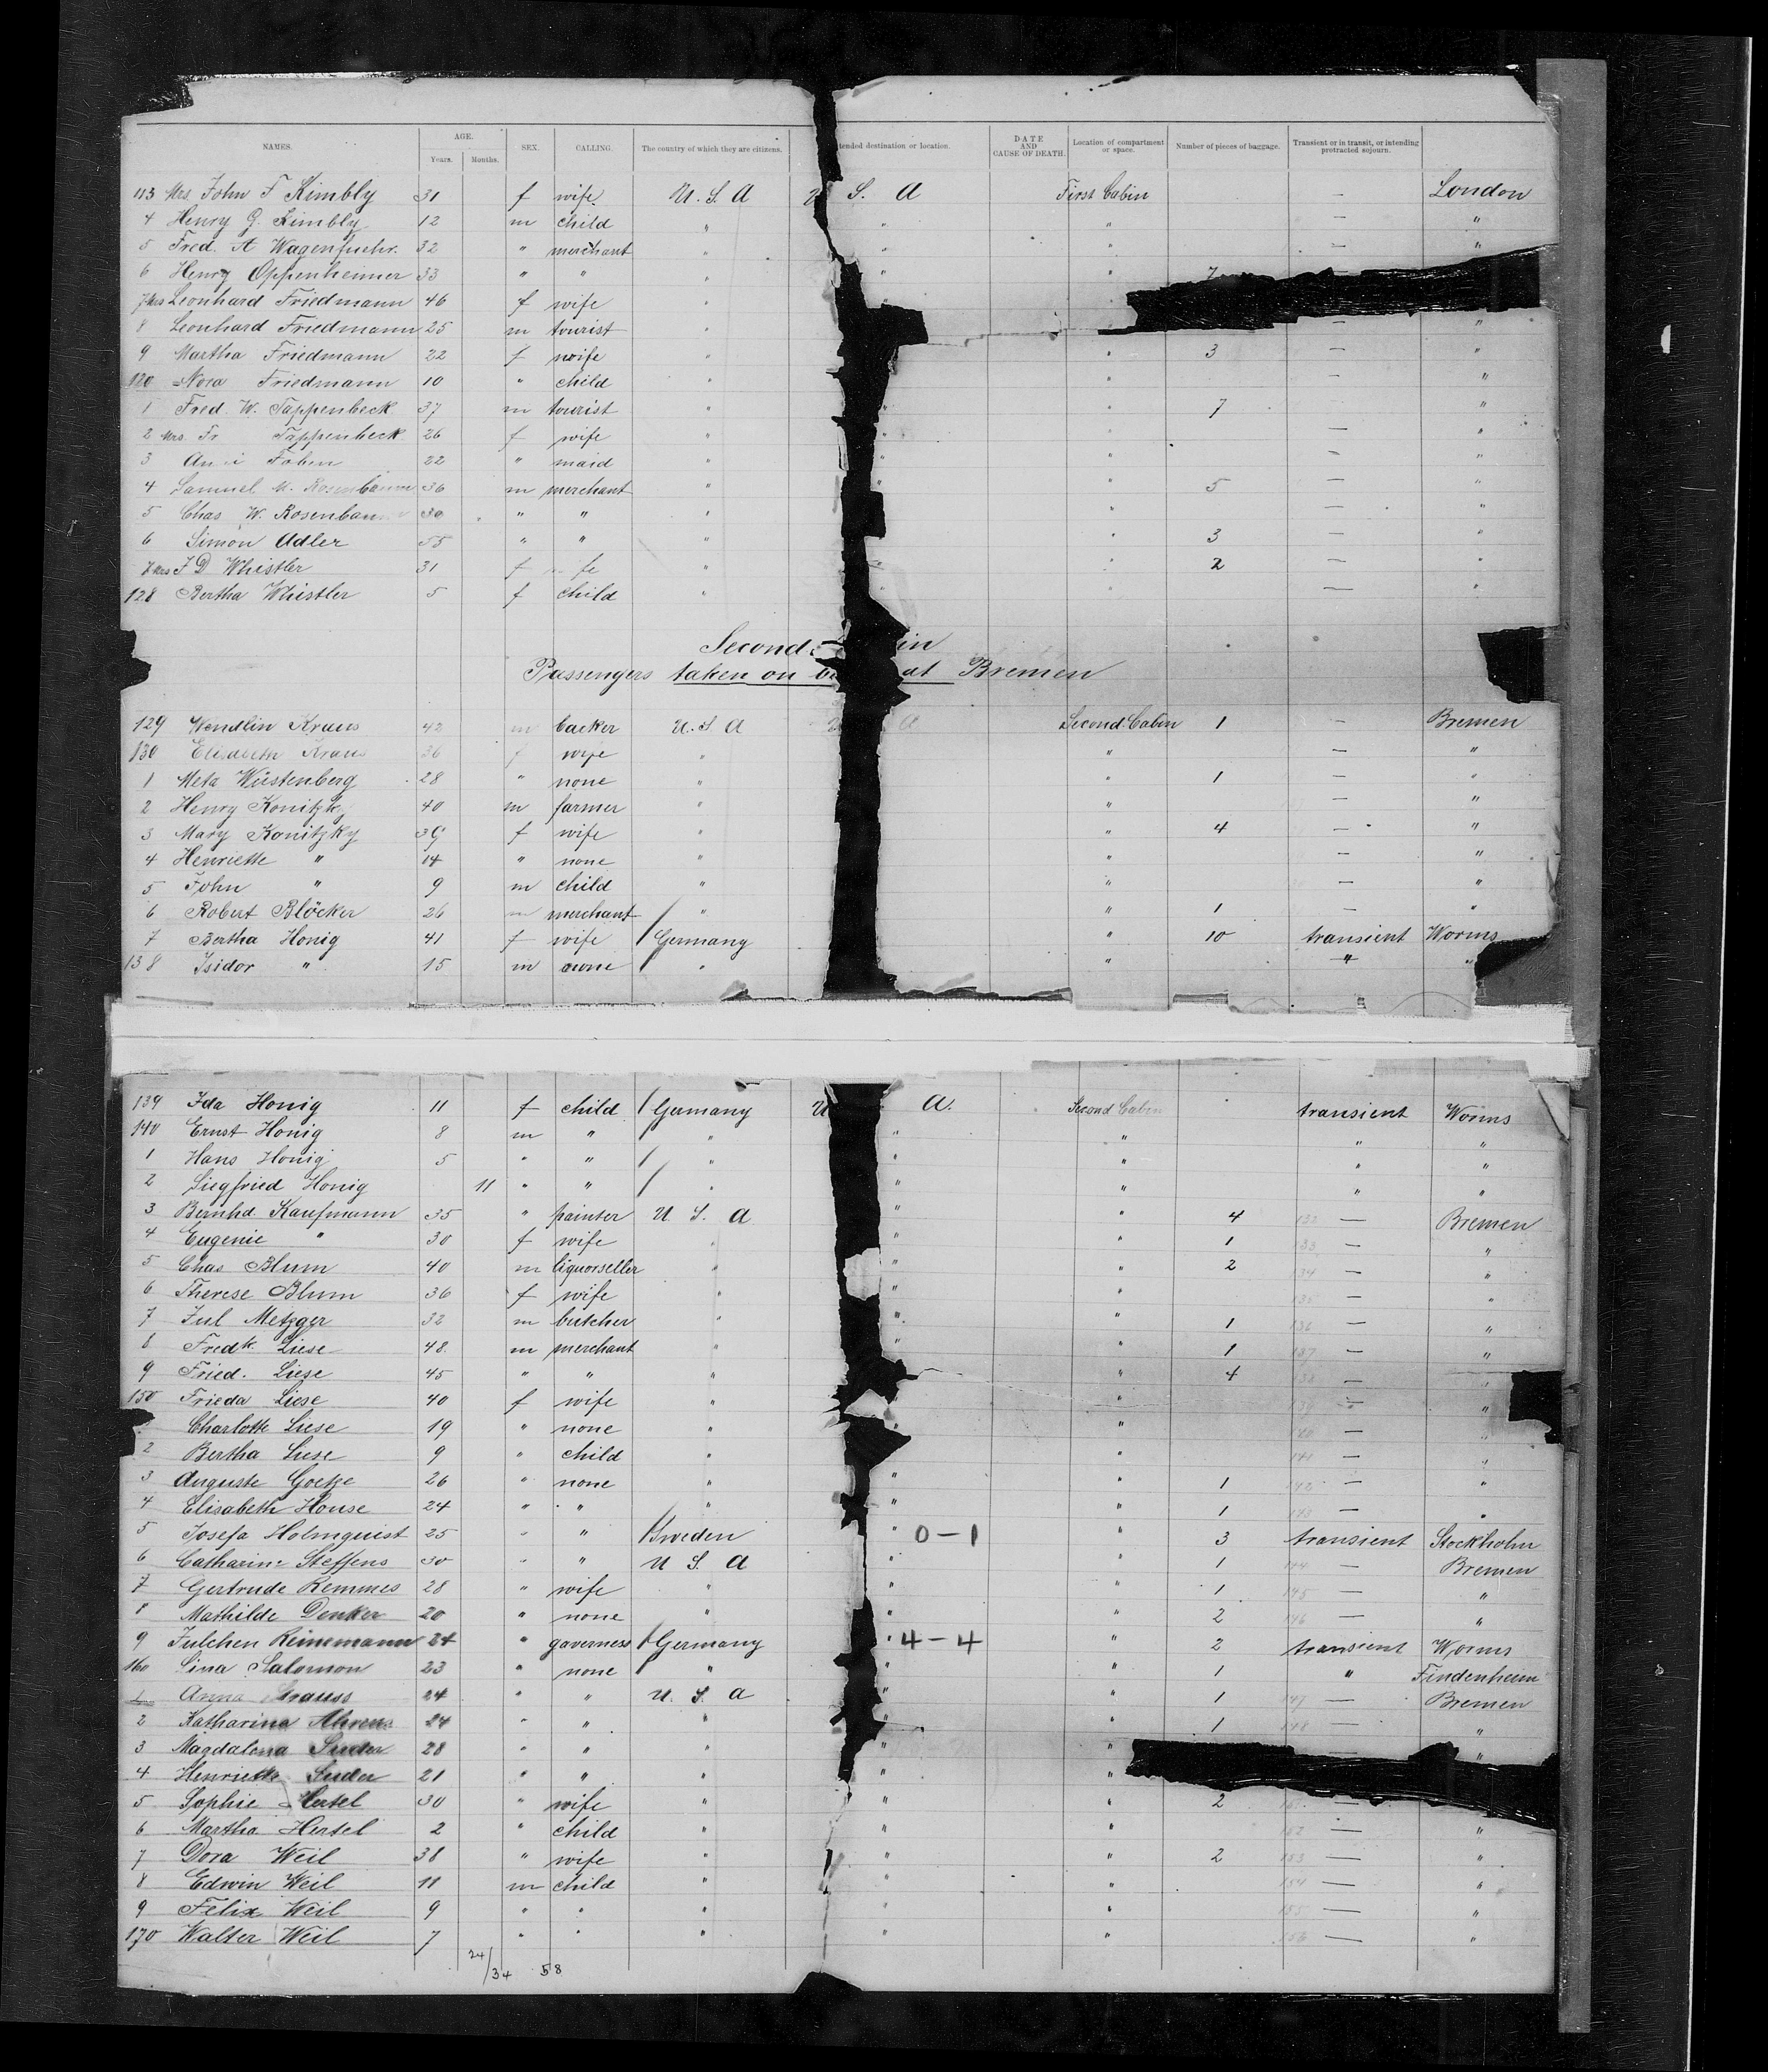 NAMES. AGE. Years. Months. SEX. CALLING. The country of which they are citizens. tended destination or location. DATE AND CAUSE OF DEATH. Location of compartment or space. Number of pieces of baggage. Transient or in transit, or intending protracted sojourn.
113 Mrs. John F Kimbly 31 f wife U. S. A U S. A First Cabin — London
4 Henry G. Kimbly 12 m child " " " — "
5 Fred. A Wagenfuehr. 32 " merchant " " " — "
6 Henry Oppenheimer 33 " " " " " 7
7 Mrs Leonhard Friedmann 46 f wife " " "
8 Leonhard Friedmann 25 m tourist " — "
9 Martha Friedmann 22 f wife " " 3 — "
120 Nora Friedmann 10 " child " " — "
1 Fred. W. Tappenbeck 37 m tourist " " 7 "
2 Mrs. Fr. Tappenbeck 26 f wife " " " — "
3 22 " maid " " " — "
4 Samuel M. Rosenbaum 36 m merchant " " " 5 — "
5 Chas W. Rosenbaum 30 " " " " — "
6 Simon Adler 55 " " " " 3 — "
7 Mrs J D Whistler 31 f fe " " 2 — "
128 Bertha Whistler 5 f child " " " — "
Second in
Passengers taken on b at Bremen
129 Wendlin Kraus 42 m backer U. S. A U A Second Cabin 1 — Bremen
130 Elisabeth Kraus 36 f wife " " — "
1 Meta Wüstenberg 28 " none " " 1 — "
2 Henry Konitzky 40 m farmer " " — "
3 Mary Konitzky 39 f wife " " 4 — "
4 Henriette " 14 " none " " — "
5 John " 9 m child " " — "
6 Robert Blöcker 26 m merchant " " 1 — "
7 Bertha Honig 41 f wife Germany " 10 transient Worms
138 Isidor " 15 m none " " " "
139 Ida Honig 11 f child Germany U A. Second Cabin transient Worms
140 Ernst Honig 8 m " " " " " "
1 Hans Honig 5 " " " " " " "
2 Siegfried Honig 11 " " " " " " "
3 Bernhd. Kaufmann 35 " painter U. S. A " " 4 132 — Bremen
4 Eugenie " 30 f wife " " " 1 133 — "
5 Chas Blum 40 m liquorseller " " " 2 134 — "
6 Therese Blum 36 f wife " " " 135 — "
7 Jul Metzger 32 m butcher " " " 1 136 — "
8 Fredk. Liese 48. m merchant " " " 1 137 — "
9 Fried. Liese 45 " " " " 4 138 — "
150 Frieda Liese 40 f wife " " " 139 — "
Charlotte Liese 19 " none " " " 140 — "
2 Bertha Liese 9 " child " " 141 — "
3 Auguste Goetze 26 " none " " " 1 142 — "
4 Elisabeth House 24 " " " " " 1 143 — "
5 Josefa Holmquist 25 " " Sweden " 0 – 1 " 3 transient Stockholm
6 Catharine Steffens 30 " " U S. A " " 1 144 — Bremen
7 Gertrude Remmes 28 " wife " " " 1 145 — "
8 Mathilde Denker 20 " none " " " 2 146 — "
9 Julchen Reinemann 24 " governess Germany " 4 – 4 " 2 transient Worms
160 Lina Salomon 23 " none " " " 1 " Findenheim
1 Anna Strauss 24 " " U. S. A " " 1 147 — Bremen
2 Katharina Ahrens 24 " " " " " 1 148 — "
3 Magdalena 28 " " " " " "
4 Henriette 21 " " " " "
5 Sophie Hertel 30 " wife " " " 2 —
6 Martha Hertel 2 " child " " " 152 — "
7 Dora Weil 38 " wife " " " 2 153 — "
8 Edwin Weil 11 m child " " " 154 — "
9 Felix Weil 9 " " " " " 155 — "
170 Walter Weil 7 " " " " " 156 — "
24/34 58